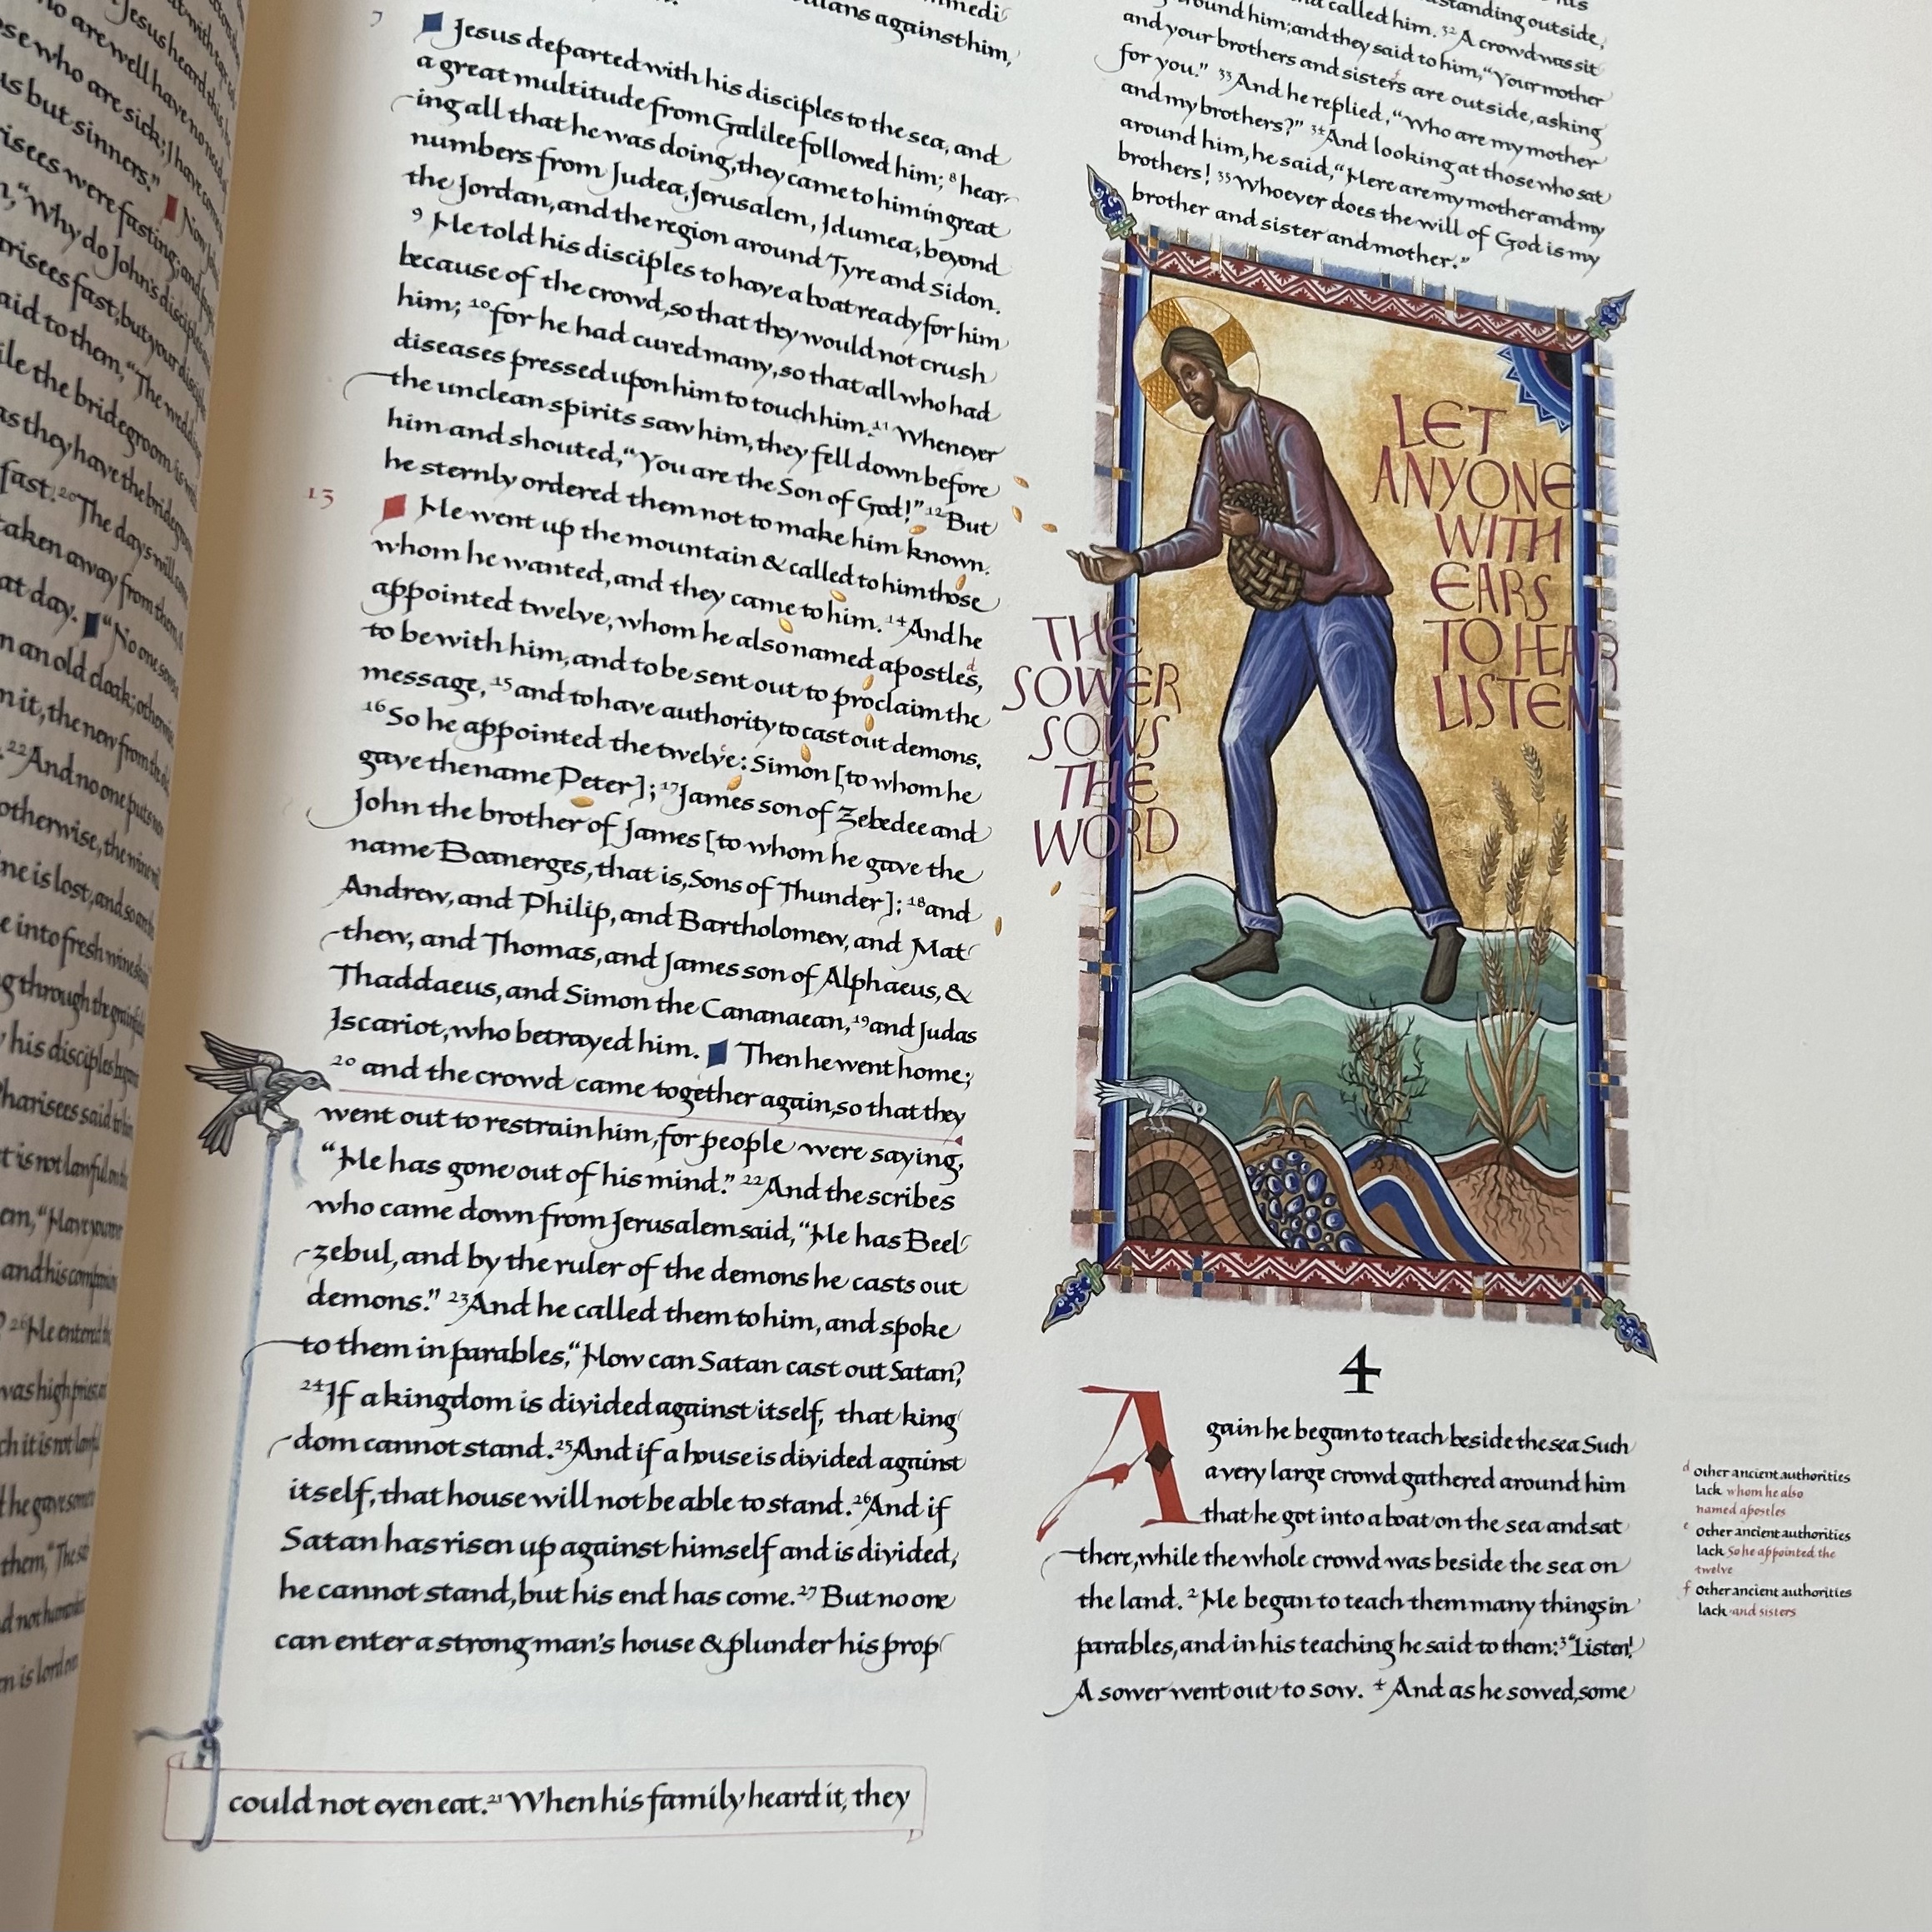 who are well have no need
who are sick; I have come
us but sinners."
Now John's
risees were fasting; and people
"Why do John's disciples and
fast, but your disciples
said to them, "The wedding
the bridegroom is with
as they have the bridegroom
fast. 20 The days will come
taken away from them,
at day. "No one sews
an old cloak; otherwise,
it, the new from the old,
22 And no one puts new
otherwise, the wine will
is lost, and so are the
into fresh wineskins
through the grainfields
his disciples began
Pharisees said to him
is not lawful on the
"Have you never
and his companions
26 He entered the
was high priest
it is not lawful
he gave some to
them, "The sab
not humankind
is lord on
against him,
7
Jesus departed with his disciples to the sea, and
a great multitude from Galilee followed him; 8 hear-
ing all that he was doing, they came to him in great
numbers from Judea, Jerusalem, Idumea, beyond
the Jordan, and the region around Tyre and Sidon.
9 He told his disciples to have a boat ready for him
because of the crowd, so that they would not crush
him; 10 for he had cured many, so that all who had
diseases pressed upon him to touch him. 11 Whenever
the unclean spirits saw him, they fell down before
him and shouted, "You are the Son of God!" 12 But
he sternly ordered them not to make him known.
13
He went up the mountain & called to him those
whom he wanted, and they came to him. 14 And he
appointed twelve, whom he also named apostles, d
to be with him, and to be sent out to proclaim the
message, 15 and to have authority to cast out demons.
16 So he appointed the twelve: e Simon [to whom he
gave the name Peter]; 17 James son of Zebedee and
John the brother of James [to whom he gave the
name Boanerges, that is, Sons of Thunder]; 18 and
Andrew, and Philip, and Bartholomew, and Mat
thew, and Thomas, and James son of Alphaeus, &
Thaddaeus, and Simon the Cananaean, 19 and Judas
Iscariot, who betrayed him. Then he went home;
20 and the crowd came together again, so that they
went out to restrain him, for people were saying,
"He has gone out of his mind." 22 And the scribes
who came down from Jerusalem said, "He has Beel
zebul, and by the ruler of the demons he casts out
demons." 23 And he called them to him, and spoke
to them in parables, "How can Satan cast out Satan?
24 If a kingdom is divided against itself, that king
dom cannot stand. 25 And if a house is divided against
itself, that house will not be able to stand. 26 And if
Satan has risen up against himself and is divided,
he cannot stand, but his end has come. 27 But no one
can enter a strong man's house & plunder his prop
could not even eat. 21 When his family heard it, they
standing outside,
called him. 32 A crowd was sit
around him; and they said to him, "Your mother
and your brothers and sisters f are outside, asking
for you." 33 And he replied, "Who are my mother
and my brothers?" 34 And looking at those who sat
around him, he said, "Here are my mother and my
brothers! 35 Whoever does the will of God is my
brother and sister and mother."
LET
ANYONE
WITH
EARS
TO HEAR
LISTEN
THE
SOWER
SOWS
THE
WORD
4
Again he began to teach beside the sea Such
a very large crowd gathered around him
that he got into a boat on the sea and sat
there, while the whole crowd was beside the sea on
the land. 2 He began to teach them many things in
parables, and in his teaching he said to them: 3 "Listen!
A sower went out to sow. 4 And as he sowed, some
d Other ancient authorities
lack whom he also
named apostles
e Other ancient authorities
lack So he appointed the
twelve
f Other ancient authorities
lack and sisters